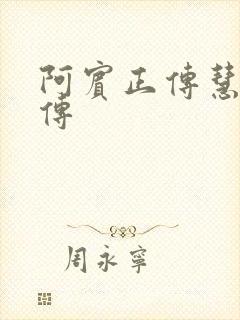 阿賓正傳慧
傳
周永寧